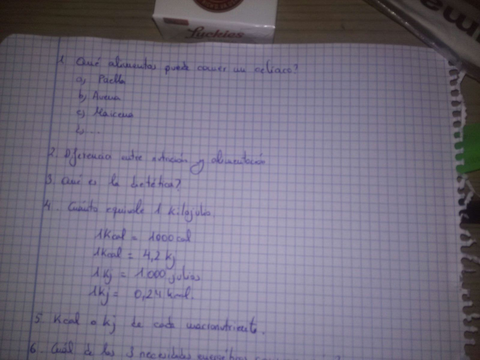 Luckies
1. Qué alimentos puede comer un celíaco?
a) Paella
b) Avena
c) Maicena
2. Diferencia entre nutrición y alimentación
3. Qué es la dietética?
4. Cuánto equivale 1 Kilojulio.
1Kcal = 1000 cal
1Kcal = 4,2 kj
1 kj = 1.000 julios
1kj = 0,24 kcal.
5. Kcal o kj de cada macronutriente.
6. Cuál de las 3 necesidades energéticas